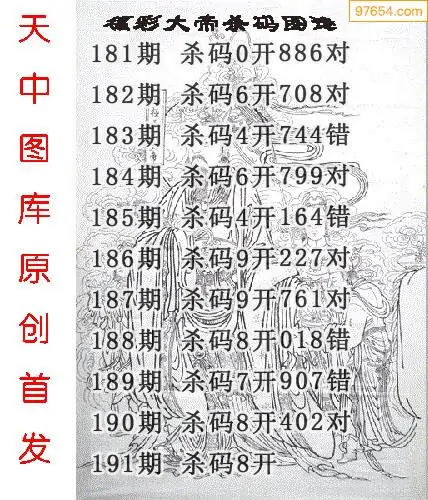 97654.com
彩大帝杀码图
天中图库原创首发
181期 杀码0开886对
182期 杀码6开708对
183期 杀码4开744错
184期 杀码6开799对
185期 杀码4开164错
186期 杀码9开227对
187期 杀码9开761对
188期 杀码8开018错
189期 杀码7开907错
190期 杀码8开402对
191期 杀码8开